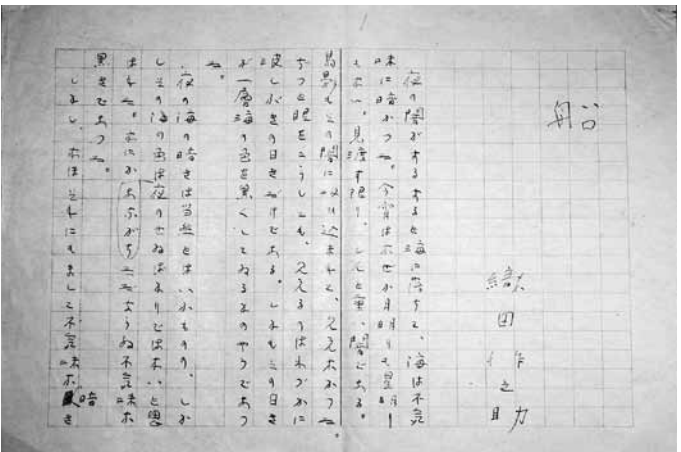 船
織田作之助
夜の闇がするすると海に落ちて、海は不気
味に暗かつた。今宵はなぜか月明りも星明り
もない。見渡す限り、しんと重い闇である。
島影もその闇に吸い込まれて、見えなかつた。
ぢつと眼をこらしても、見えるのはわづかに
波しぶきの白さだけである。しかもその白さ
が一層海の色を黒くしてゐるかのやうであつ
た。
夜の海の暗さは当然とはいふものの、しか
しその海の色は夜のせゐばかりではないと思
はれた。なにかただならぬ不気味な
黒さであつた。
しかし、船はそれにもまして不気味な暗さ